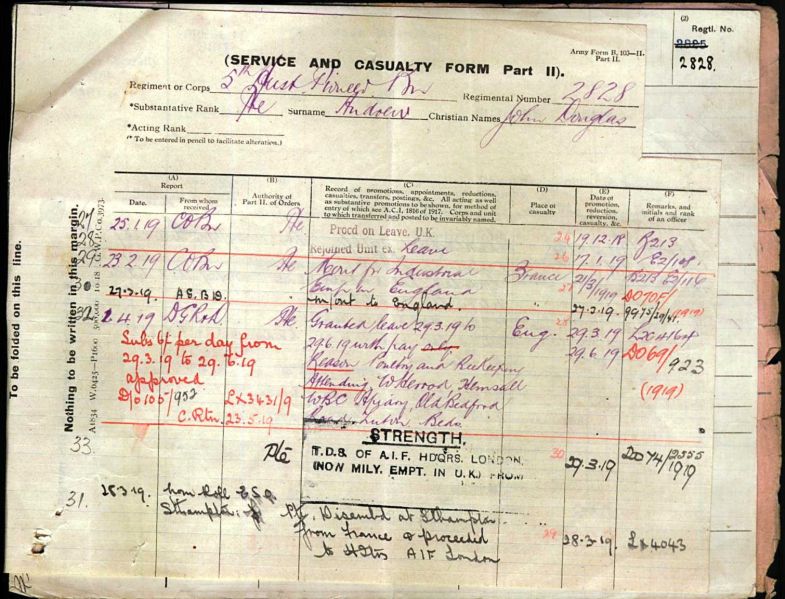 (2)
Regtl. No.
2825
2828.
Army Form B. 103—II.
Part II.
(SERVICE AND CASUALTY FORM Part II).
Regiment or Corps 5th Aust Pioneer Bn Regimental Number 2828
*Substantive Rank Pte Surname Andrew Christian Names John Douglas
*Acting Rank
(* To be entered in pencil to facilitate alteration.)
To be folded on this line.
Nothing to be written in this margin.
(A)
Report
Date.
From whom received
(B)
Authority of Part II. of Orders
(C)
Record of promotions, appointments, reductions,
casualties, transfers, postings, &c. All acting as well
as substantive promotions to be shown, for method of
entry of which see A.C.I. 1816 of 1917. Corps and unit
to which transferred and posted to be invariably named.
(D)
Place of casualty
(E)
Date of promotion, reduction, reversion, casualty, &c.
(F)
Remarks, and initials and rank of an officer
27 25.1.19 CO Bn Pte Procd on Leave, U.K. 24 19.12.18 B213
28 Rejoined Unit ex Leave 26 17.1.19
29 23.2.19 CO Bn Pte for Industrial France 21/3/1919 B213
Emp in England 27 DO70F/
27.3.19. M/out to England. " 27.3.19. (1919)
32 2.4.19 Pte Granted leave 29.3.19 to Eng. 28 29.3.19 LX 4164
Subs 6/- per day from 29.6.19 with pay only 29.6.19 DO69/923
29.3.19 to 29.6.19 Reason Poultry and Bee Keeping
approved Attending (1919)
D/o 105/932 LX3431/9 Old Bedford
C.Rtn. 23.5.19 Luton Beds
33. STRENGTH,
Pte T.D.S. OF A.I.F. HDQRS. LONDON, 30 27.3.19 DO74/2355
(NOW MILY. EMPT. IN U.K.) FROM 1919
31. 28.3.19. Nom Roll E.S.O.
Sthampton. Pte. Disembd at Sthampton
from France & proceeded 29 28.3.19 LX4043
to Hdtrs AIF London